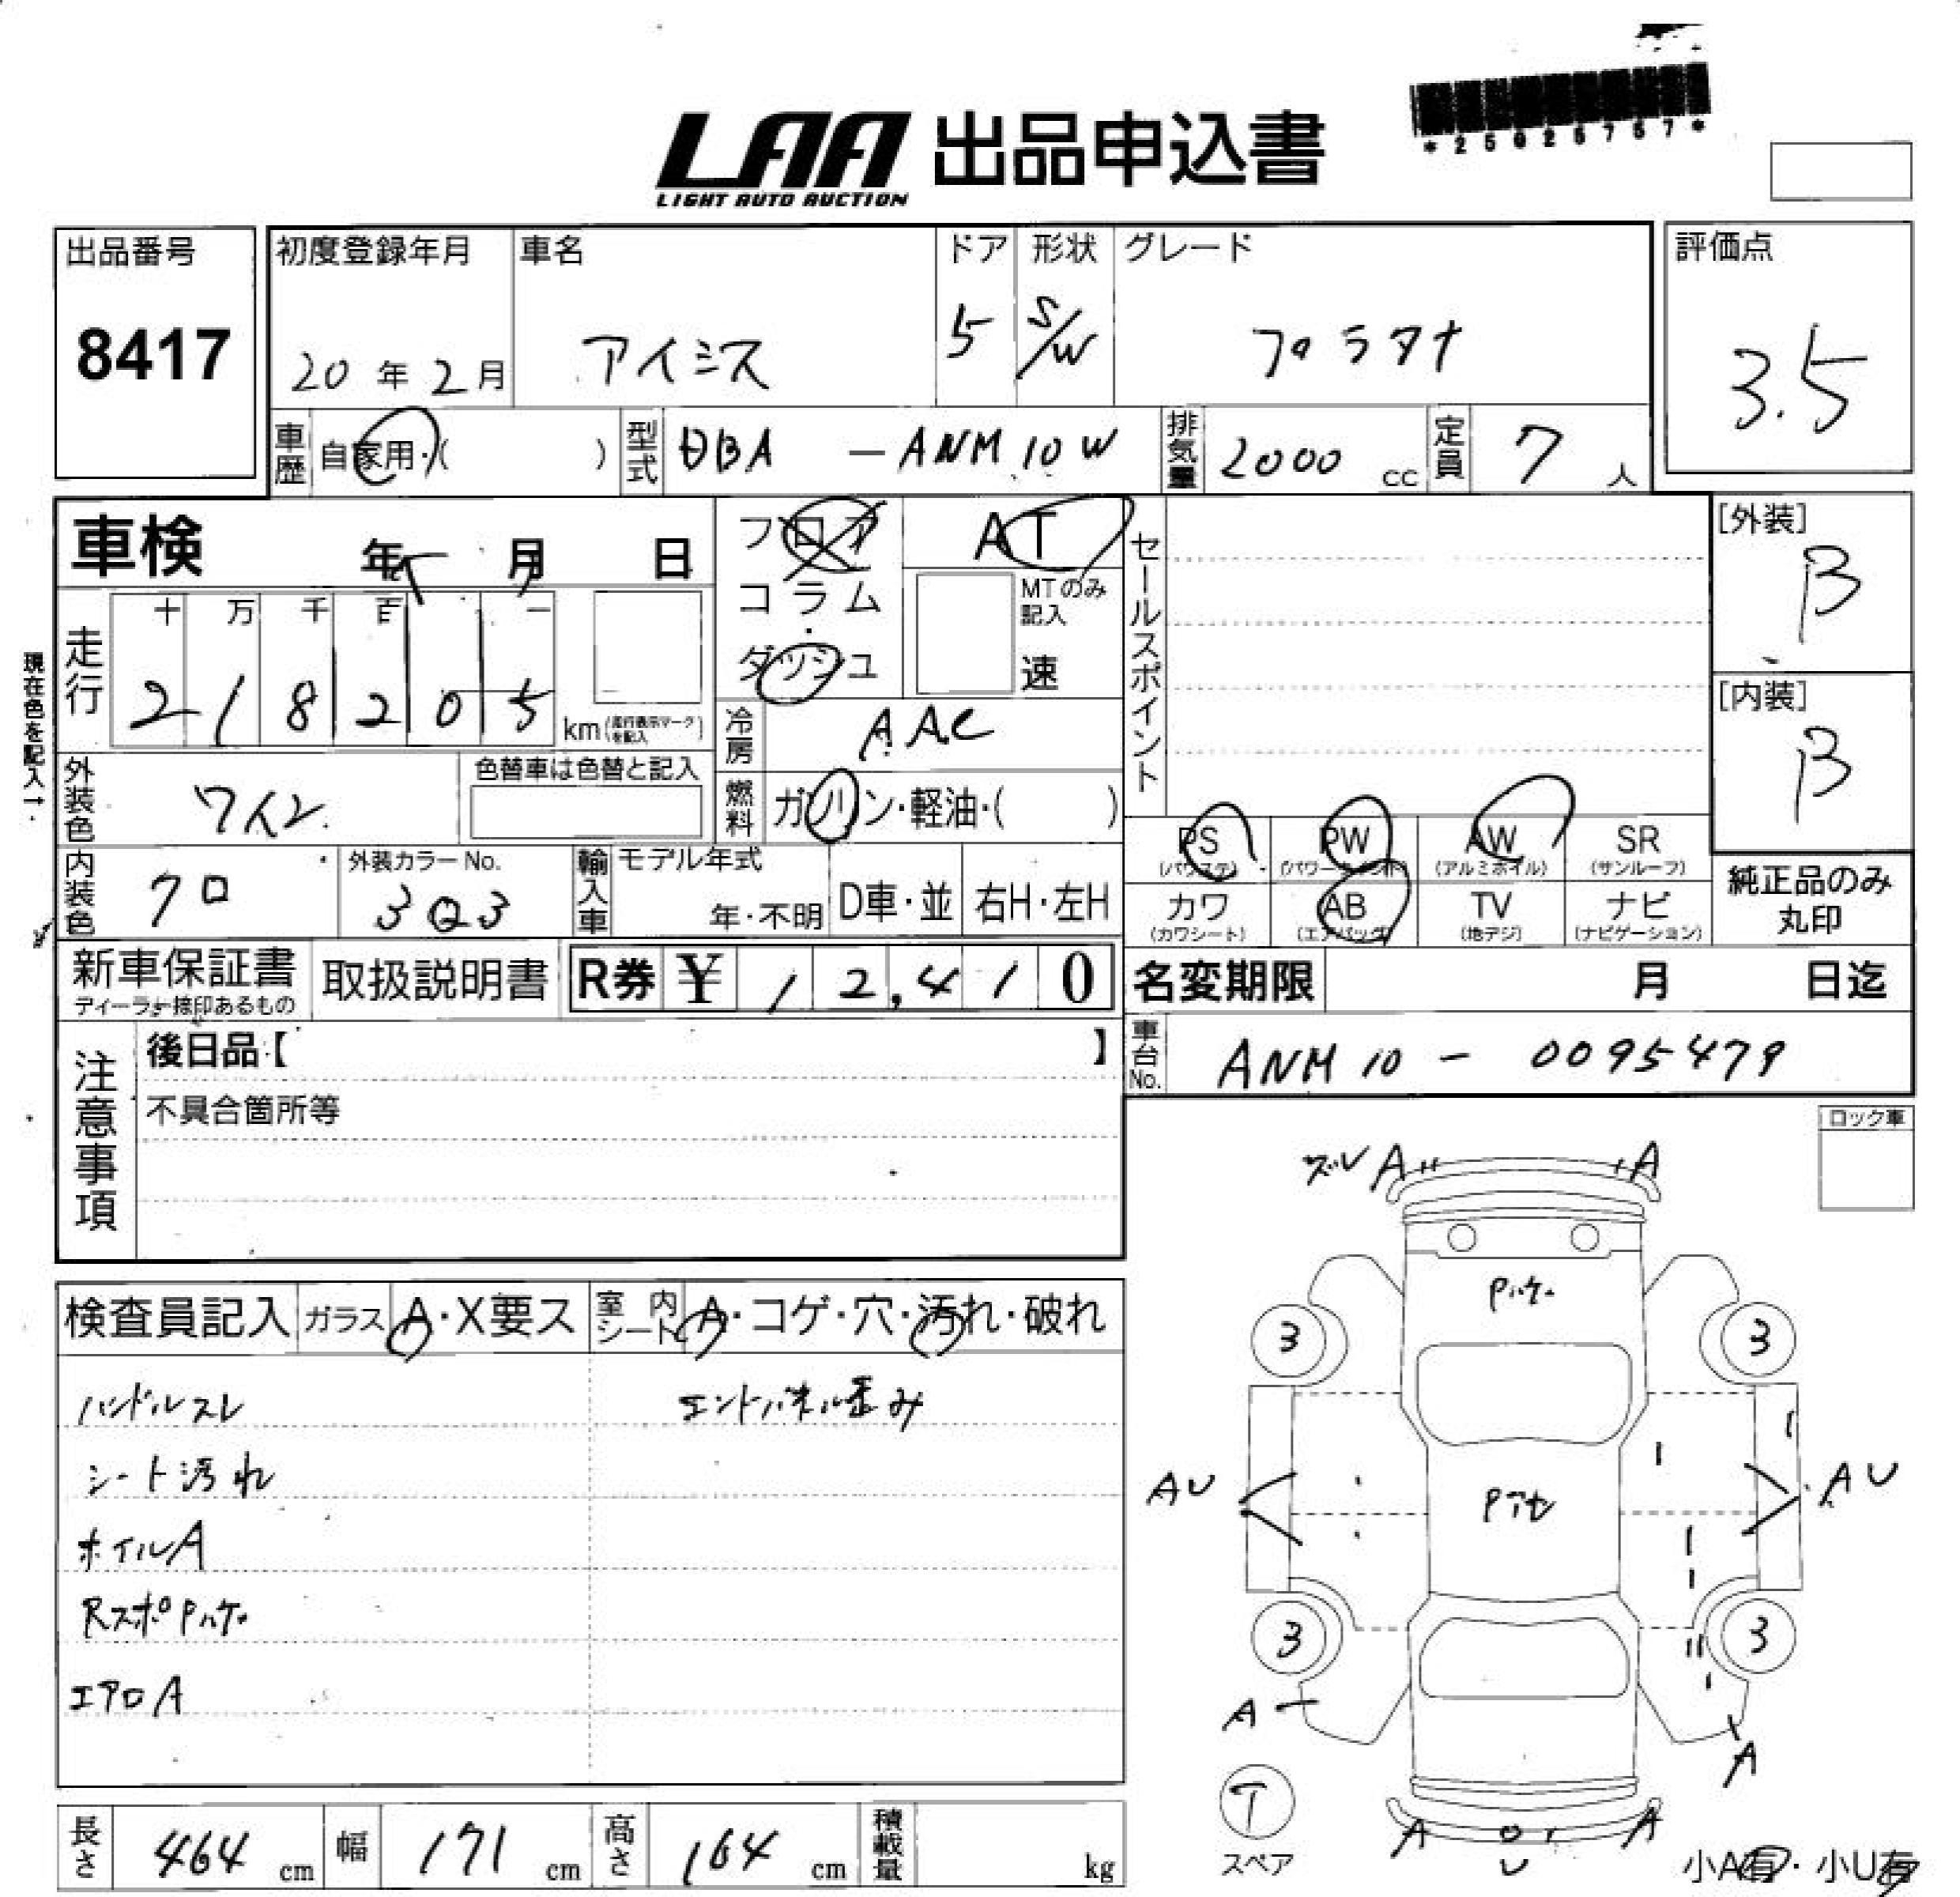 *25026757*
LAA 出品申込書
LIGHT AUTO AUCTION
出品番号
8417
初度登録年月
20年2月
車名
アイシス
ドア
5
形状
S/W
グレード
プラタナ
評価点
3.5
車歴
自家用・( )
型式
DBA - ANM10W
排気量
2000 cc
定員
7 人
車検 年 月 日
フロア
コラム
・
ダッシュ
AT
MTのみ
記入
速
セールスポイント
[外装]
B
[内装]
B
走行
十 万 千 百 一
2 1 8 2 0 5 km (走行表示マークを記入)
現在色を記入→
冷房
AAC
外装色
ワイン
色替車は色替と記入
燃料
ガソリン・軽油・( )
内装色
クロ
外装カラーNo.
3Q3
輸入車
モデル年式
年・不明
D車・並
右H・左H
PS
(パワステ)
PW
(パワーウインド)
AW
(アルミホイル)
SR
(サンルーフ)
カワ
(カワシート)
AB
(エアバッグ)
TV
(地デジ)
ナビ
(ナビゲーション)
純正品のみ
丸印
新車保証書
ディーラー捺印あるもの
取扱説明書
R券 ¥ 12,410
名変期限 月 日迄
車台No.
ANM10 - 0095479
注意事項
後日品【 】
不具合箇所等
ロック車
検査員記入
ガラス
A・X要ス
室内シート
A・コゲ・穴・汚れ・破れ
ハンドルスレ
エンドパネル歪み
シート汚れ
ホイルA
RスポPハゲ
エアロA
ズレ A A
Pハゲ
3 3
AU AU
3 3
A A
T
スペア
A U A
小A有・小U有
長さ
464 cm
幅
171 cm
高さ
164 cm
積載量
kg